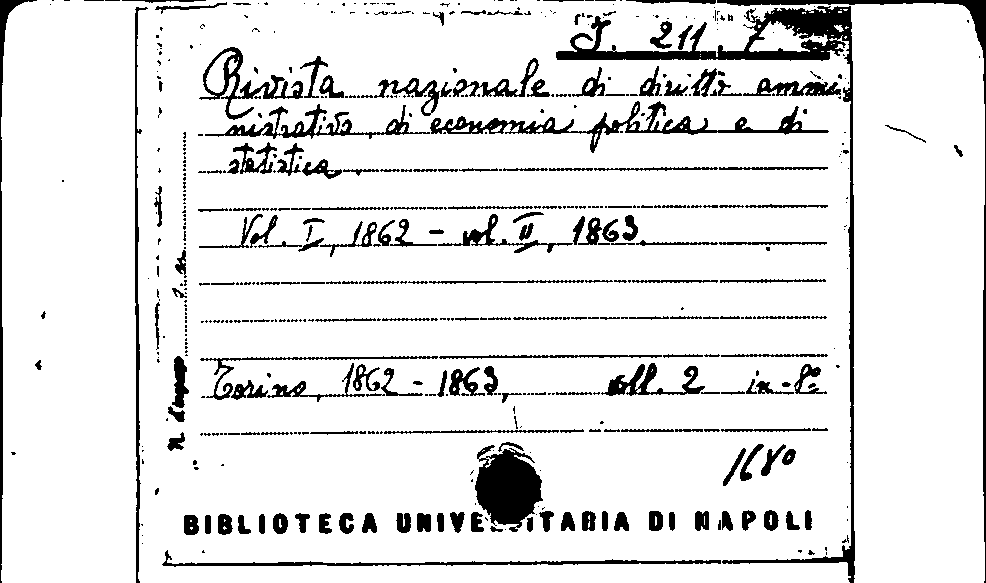 J. 211. 7.
Rivista nazionale di diritto ammi
nistrativo, di economia politica e di
statistica.
Vol. I, 1862 - vol. II, 1863.
Torino, 1862 - 1863, voll. 2 in-8º
N. d'ingresso
BIBLIOTECA UNIVERSITARIA DI NAPOLI